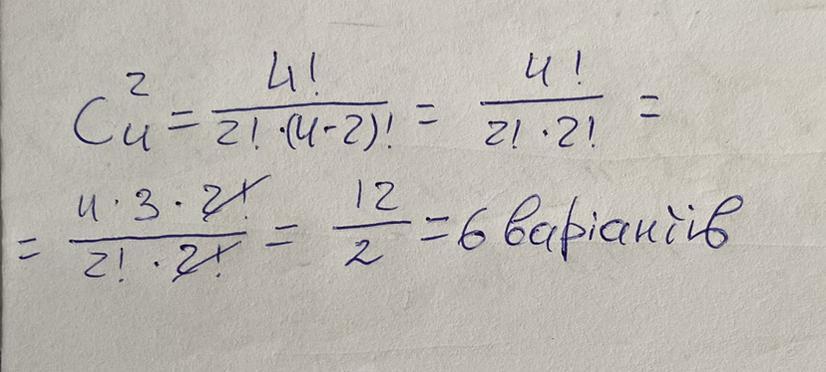 C₄² = 4! / (2! · (4-2)!) = 4! / (2! · 2!) =
= (4 · 3 · 2!) / (2! · 2!) = 12 / 2 = 6 варіантів